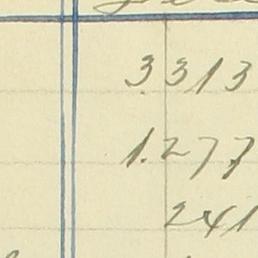 3313
1.277
241